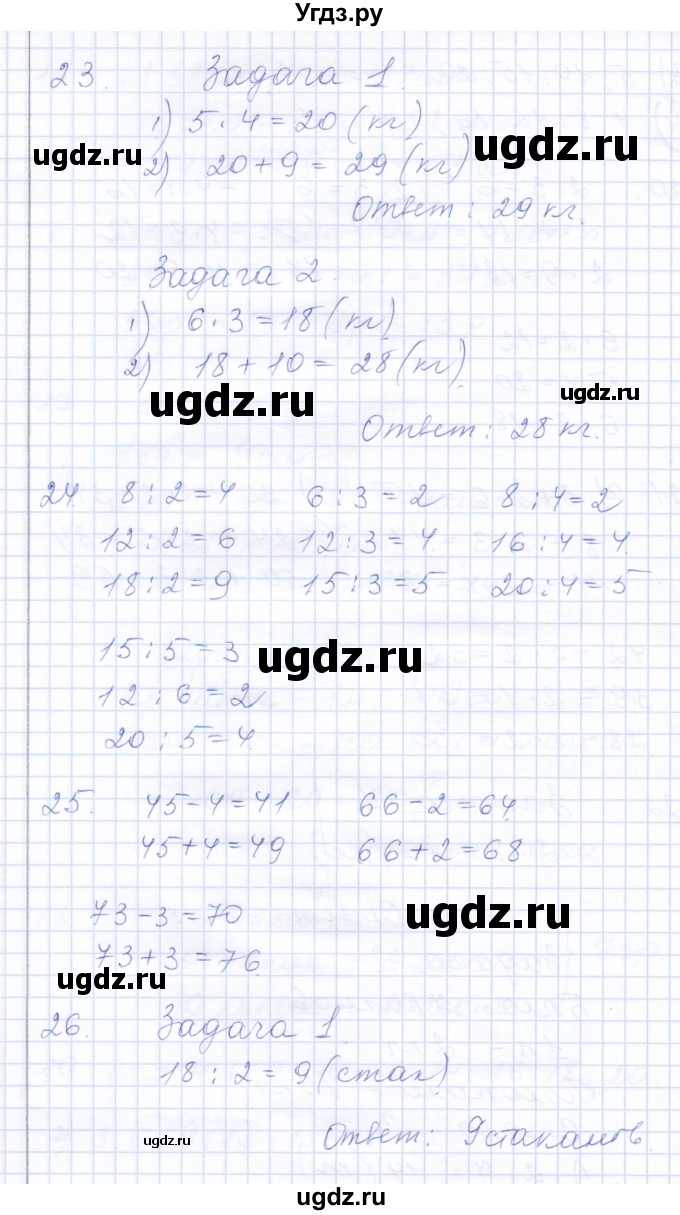 Угдз.ру
23. Задача 1.
1) 5 · 4 = 20 (кг)
ugdz.ru
ugdz.ru
2) 20 + 9 = 29 (кг)
Ответ: 29 кг.
Задача 2.
1) 6 · 3 = 18 (кг)
2) 18 + 10 = 28 (кг).
ugdz.ru
ugdz.ru
Ответ: 28 кг.
24. 8 : 2 = 4 6 : 3 = 2 8 : 4 = 2
12 : 2 = 6 12 : 3 = 4 16 : 4 = 4.
18 : 2 = 9 15 : 3 = 5 20 : 4 = 5
15 : 5 = 3
ugdz.ru
12 : 6 = 2
20 : 5 = 4.
25. 45 - 4 = 41 66 - 2 = 64.
45 + 4 = 49 66 + 2 = 68
73 - 3 = 70
ugdz.ru
73 + 3 = 76.
ugdz.ru
26. Задача 1.
18 : 2 = 9 (стак)
ugdz.ru
Ответ: 9 стаканов.
ugdz.ru